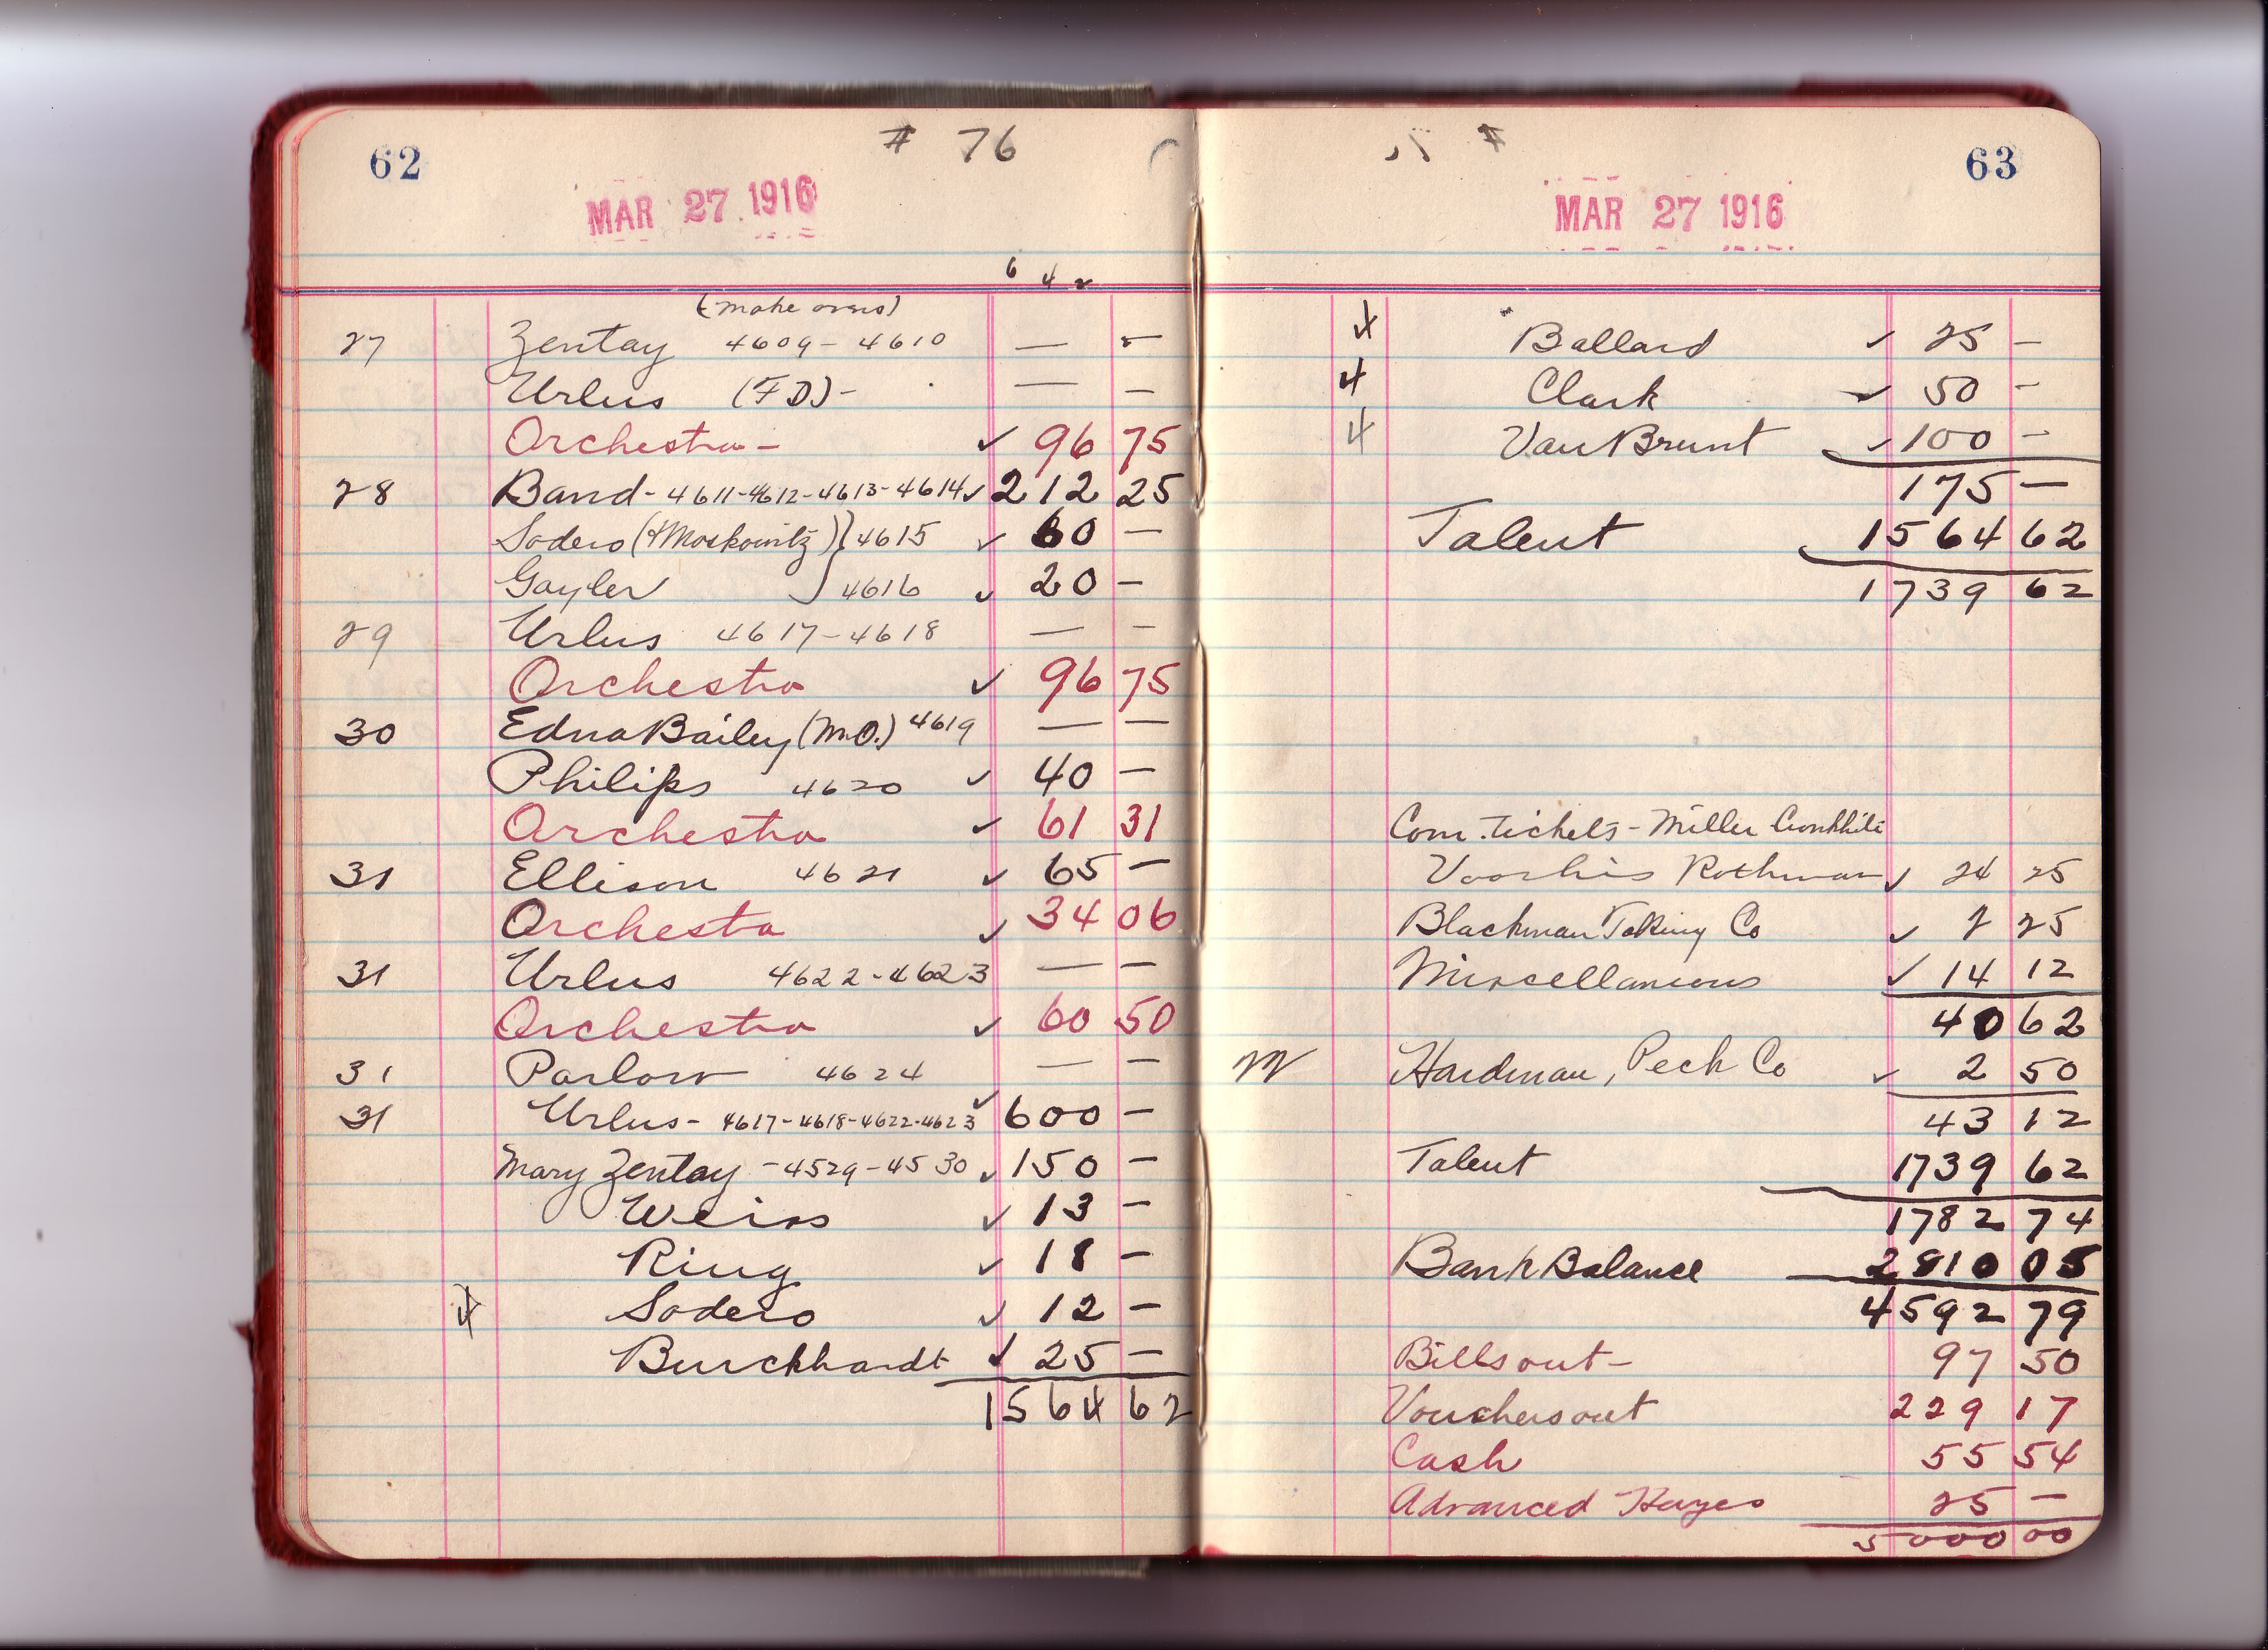 62
# 76
MAR 27 1916
6 4 2
(make overs)
27 Zentay 4609 - 4610 — —
Urlus (FD) - — —
Orchestra - ✓ 96 75
28 Band - 4611-4612-4613-4614 ✓ 212 25
Sodero (& Moskowitz) } 4615 ✓ 60 —
Gayler 4616 ✓ 20 —
29 Urlus 4617-4618 — —
Orchestra ✓ 96 75
30 Edna Bailey (M.O.) 4619 — —
Philips 4620 ✓ 40 —
Orchestra ✓ 61 31
31 Ellison 4621 ✓ 65 —
Orchesta ✓ 34 06
31 Urlus 4622-4623 — —
Orchestra ✓ 60 50
31 Parlow 4624 — —
31 Urlus - 4617-4618-4622-4623 ✓ 600 —
Mary Zentay - 4529-4530 ✓ 150 —
Weiss ✓ 13 —
Ring ✓ 18 —
4 Sodero ✓ 12 —
Burckhardt ✓ 25 —
1564 62
#
63
MAR 27 1916
4 Ballard ✓ 25 —
4 Clark ✓ 50 —
4 Van Brunt ✓ 100 —
175 —
Talent 1564 62
1739 62
Com. tickets - Miller Cronkhite
Voorhis Rothman ✓ 24 25
Blackman Talking Co ✓ 2 25
Miscellaneous ✓ 14 12
40 62
Hardman, Peck Co ✓ 2 50
43 12
Talent 1739 62
1782 74
Bank Balance 2810 05
4592 79
Bills out - 97 50
Vouchers out 229 17
Cash 55 54
Advanced Hayes 25 —
5000 00